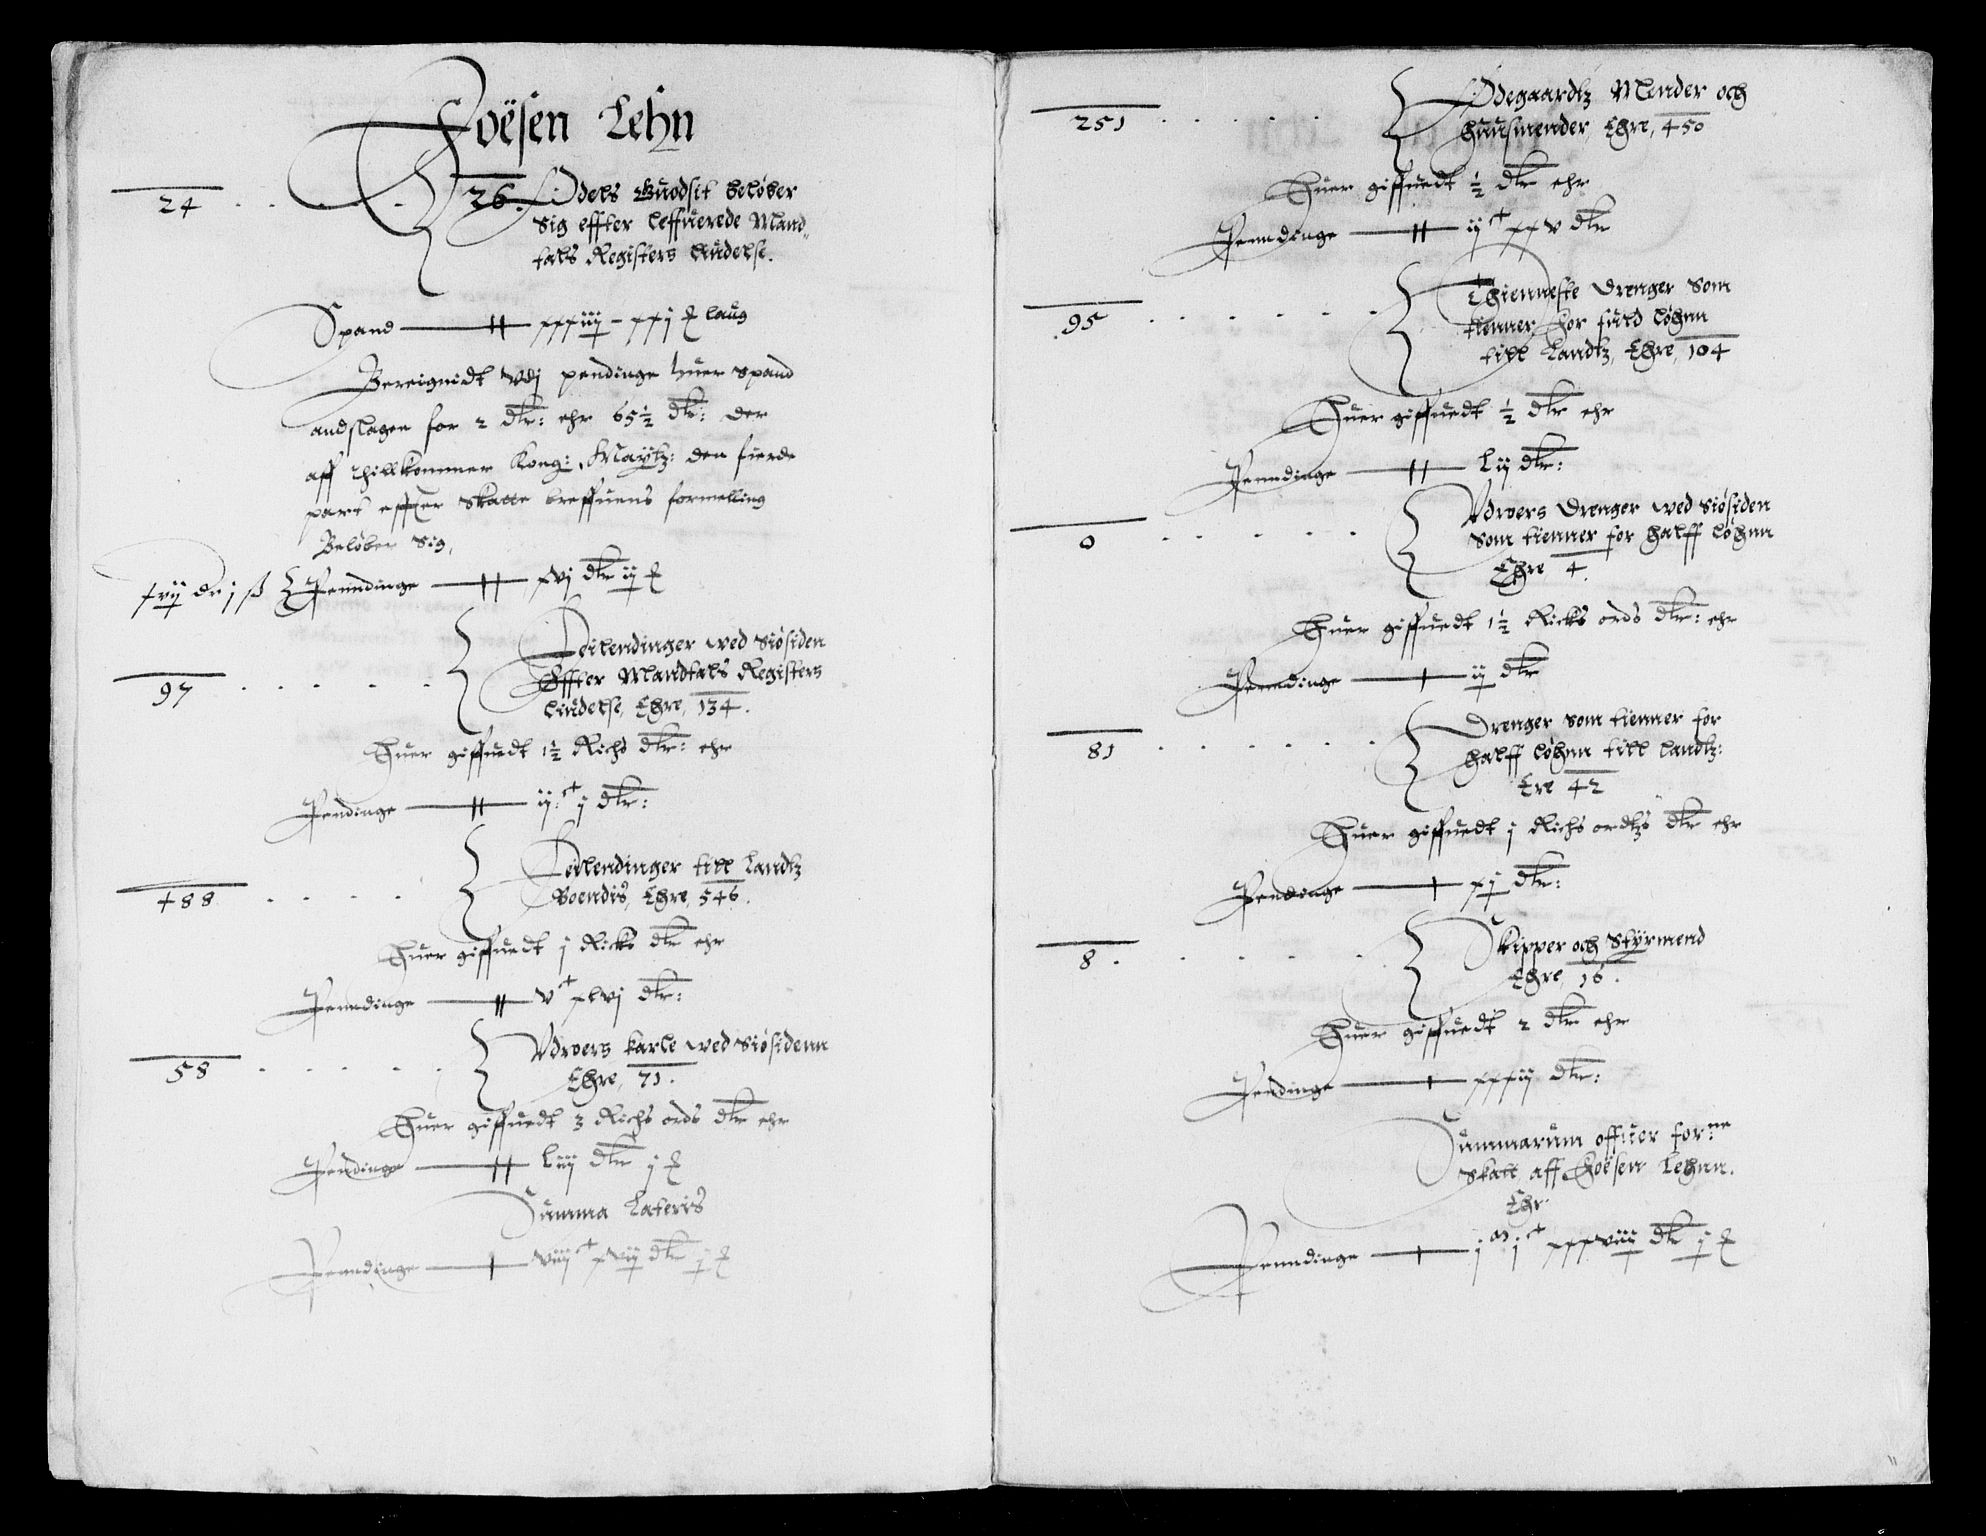 Foësen Lehn
24 . . . . . 26. Odels Guodsit beløber
sig effter leffuerede Mand„
tals Registers liudelse.
Spand —— xxxiij – xxj ₰ laug
Bereignidt vdj pendinge huer spand
andslagen for 2 dlr: ehr 65½ dlr: der
aff thillkommer Kong: Maytz: den fierde
part effter Skatte breffuens formelling
Beløber sig,
xvij dr j ß Penndinge —— xvj dlr ij ₰
97 . . . . . Leilendinger wed Siøsiden
Effter Mandtals Registers
liudelse, Ehre, 134.
Huer giffuedt 1½ Richs dlr: ehr
Pendinge —— ij:c j dlr:
488 . . . . Leilendinger till Landtz
Boendis, Ehre, 546.
Huer giffuedt j Ricks dlr ehr
Penndinge —— vc xlvj dlr:
58 . . . . . Vdroers karle wed Siøsidenn
Ehre, 71.
Huer giffuedt 3 Richs ords dlr ehr
Pendinge —— Liij dlr j ₰
Summa Lateris
Penndinge —— viijc xvij dlr j ₰
251 . . . . . Ødegaardtz Mender och
huusmender, Ehre, 450
Huer giffuedt ½ dlr ehr
Penndinge —— ijc xxv dlr
95 . . . . . . Thienneste Drenger som
tienner for fuld løhnn
till Landtz, Ehre, 104
Huer giffuedt ½ dlr ehr
Penndinge —— Lij dlr:
0 . . . . . Vdroers Drenger wed Siøsiden
som tienner for halff løhnn
Ehre 4.
Huer giffuedt 1½ Ricks ords dlr: ehr
Penndinge —— ij dlr
81 . . . . . . Drenger som tienner for
halff løhnn till landtz:
Ere 42
Huer giffuedt j Richs ordtzs dlr ehr
Pendinge —— xj dlr:
8 . . . . . Skipper och Styrmend
Ehre, 16.
Huer giffuedt 2 dlr ehr
Pendinge —— xxxij dlr:
Summarum offuer for:ne
Skatt aff Foësen Lehnn.
Ehr
Penndinge —— jm jc xxxviij dlr j ₰